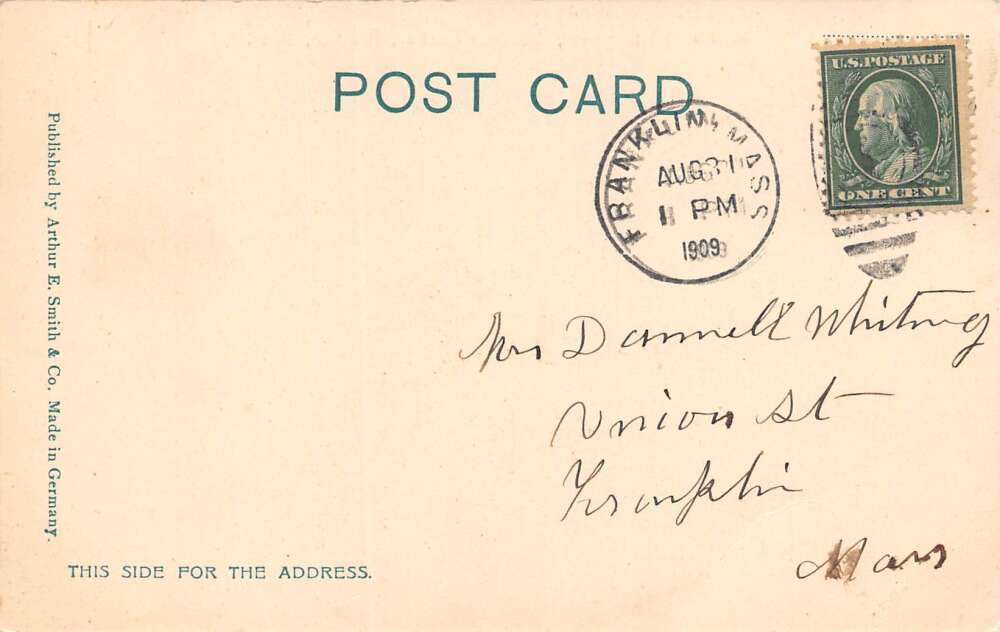 POST CARD
U.S. POSTAGE
ONE CENT
FRANKLIN, MASS
AUG 31
PM
1909
Mrs Dannell Whitney
Union St
Franklin
Mass
Published by Arthur E. Smith & Co. Made in Germany.
THIS SIDE FOR THE ADDRESS.